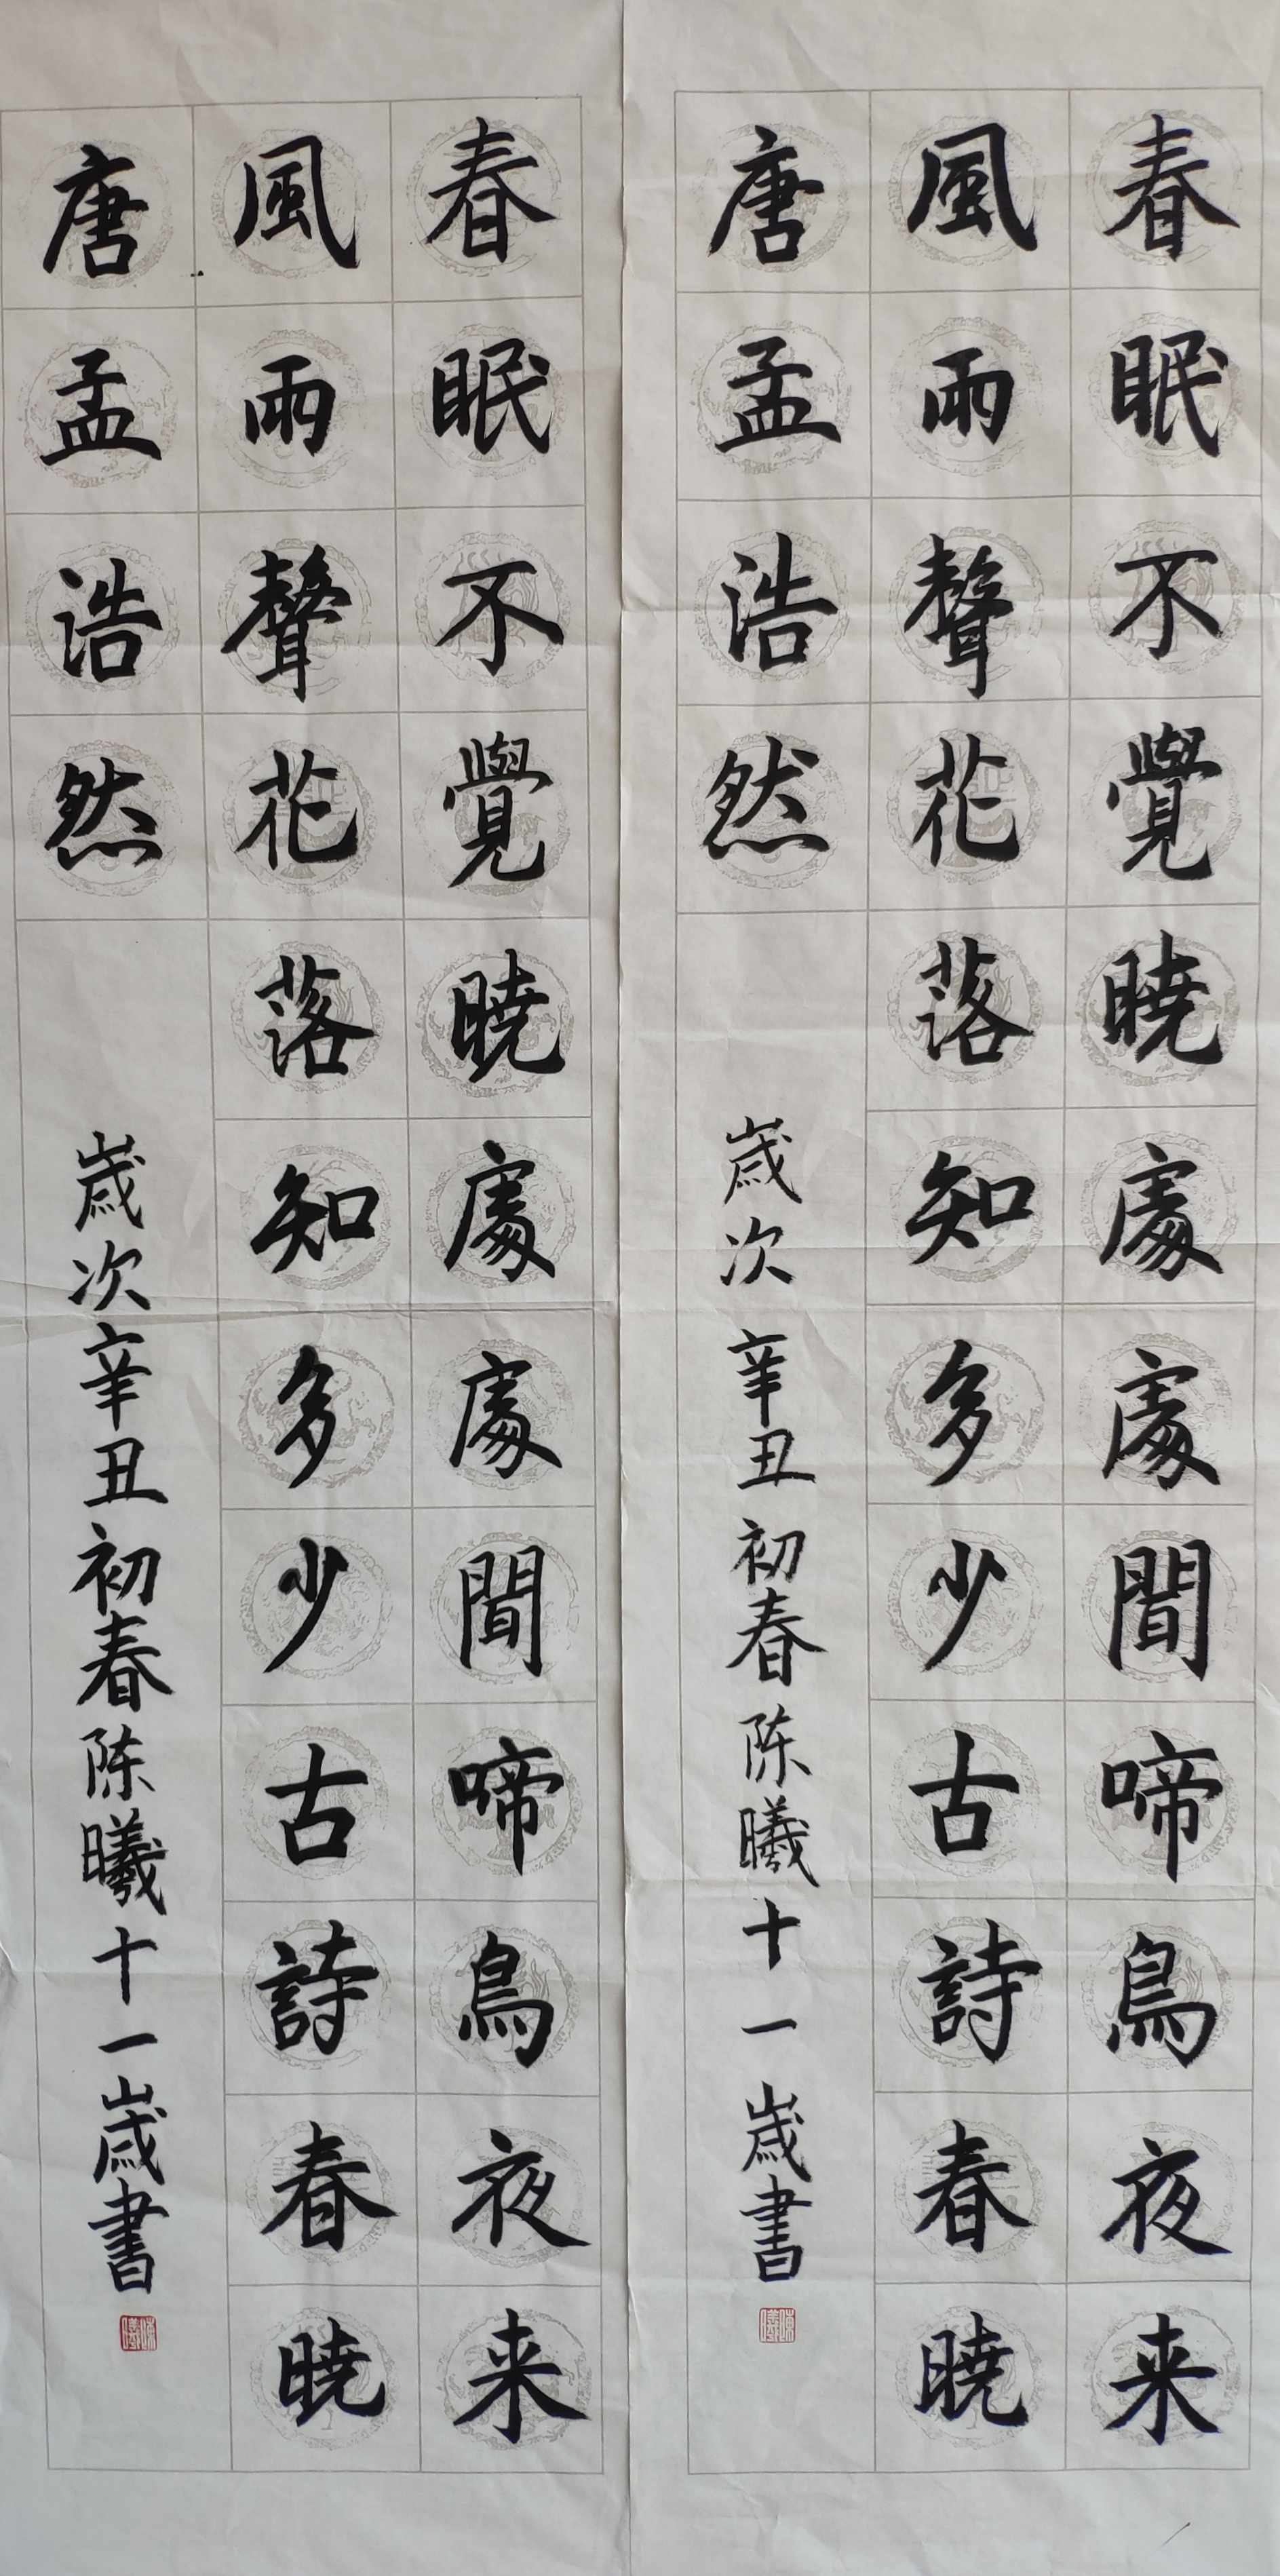 春眠不覺曉處處聞啼鳥夜来
風雨聲花落知多少古詩春曉
唐孟浩然
歲次辛丑初春陈曦十一歲書
陳曦
春眠不覺曉處處聞啼鳥夜来
風雨聲花落知多少古詩春曉
唐孟浩然
歲次辛丑初春陈曦十一歲書
陳曦